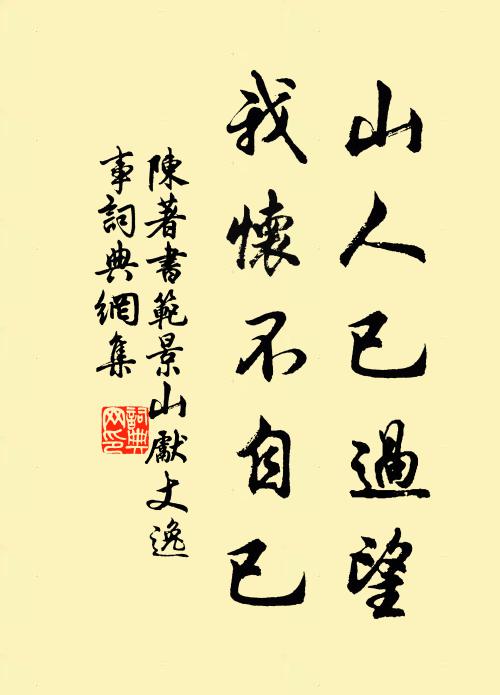 山人已過望
我懷不自已
陳著書範景山獻丈逸
事詞典網集
詞典网印